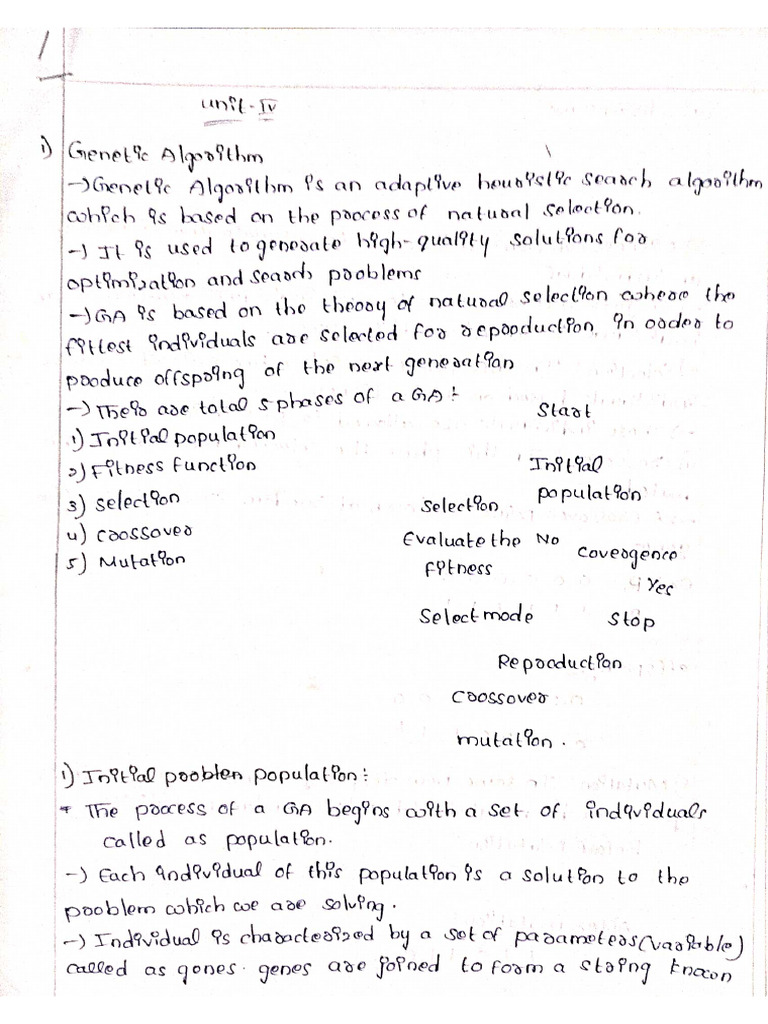 1
Unit-IV
1) Genetic Algorithm
→ Genetic Algorithm is an adaptive heuristic search algorithm
which is based on the process of natural selection.
→ It is used to generate high-quality solutions for
optimization and search problems
→ GA is based on the theory of natural selection where the
fittest individuals are selected for reproduction in order to
produce offspring of the next generation
→ Their are total 5 phases of a GA:
1) Initial population
2) Fitness function
3) selection
4) crossover
5) Mutation
Start
Initial
population
Selection
Evaluate the No
fitness
Covergence
Yes
Select mode
Stop
Reproduction
Crossover
mutation.
1) Initial problen population:
* The process of a GA begins with a set of individuals
called as population.
→ Each individual of this population is a solution to the
problem which we are solving.
→ Individual is characterized by a set of parameters (variable)
called as genes. genes are joined to form a string known